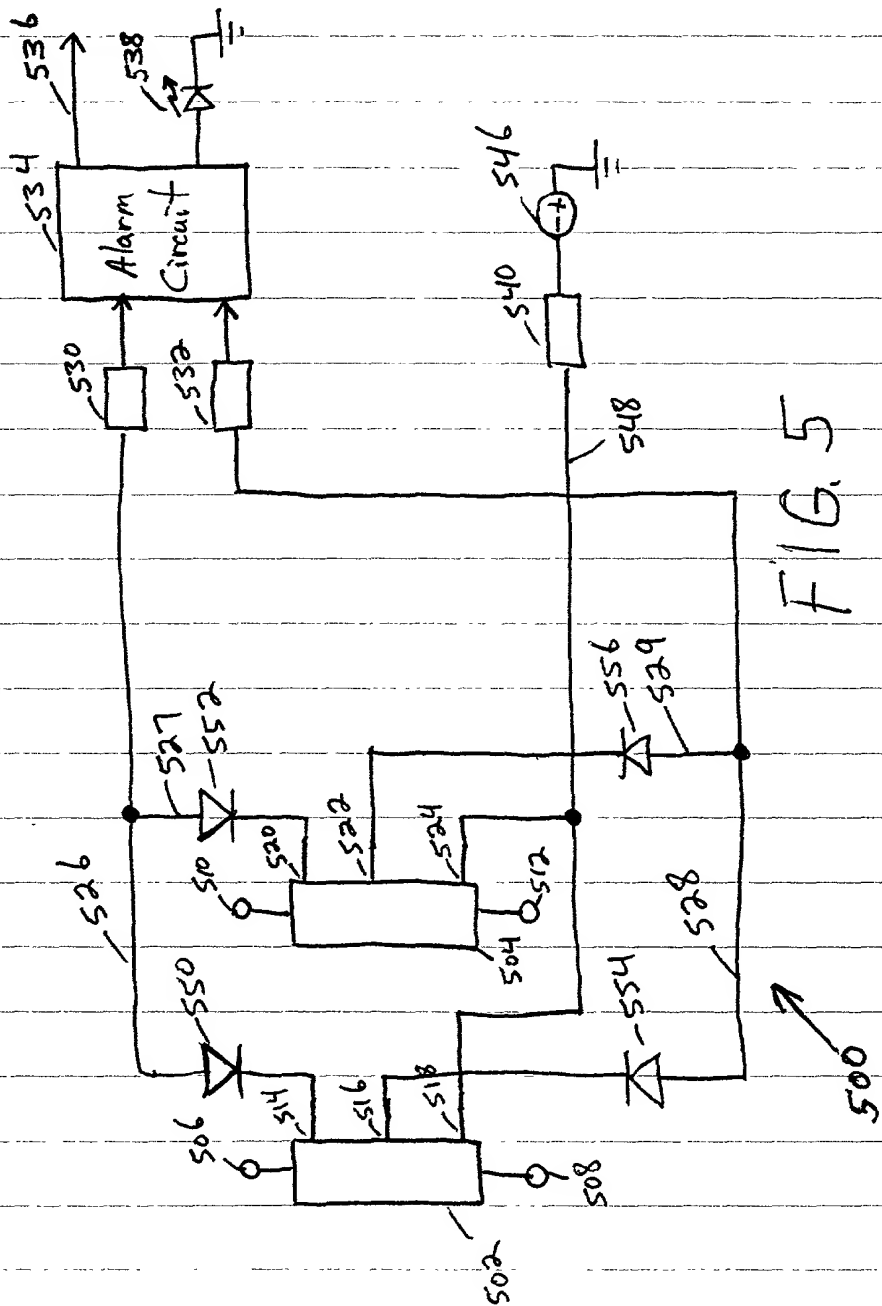 536
538
534
Alarm
Circuit
530
532
546
540
548
FIG. 5
527
552
556
529
526
510
520
522
524
512
528
504
550
554
506
514
516
518
500
508
502